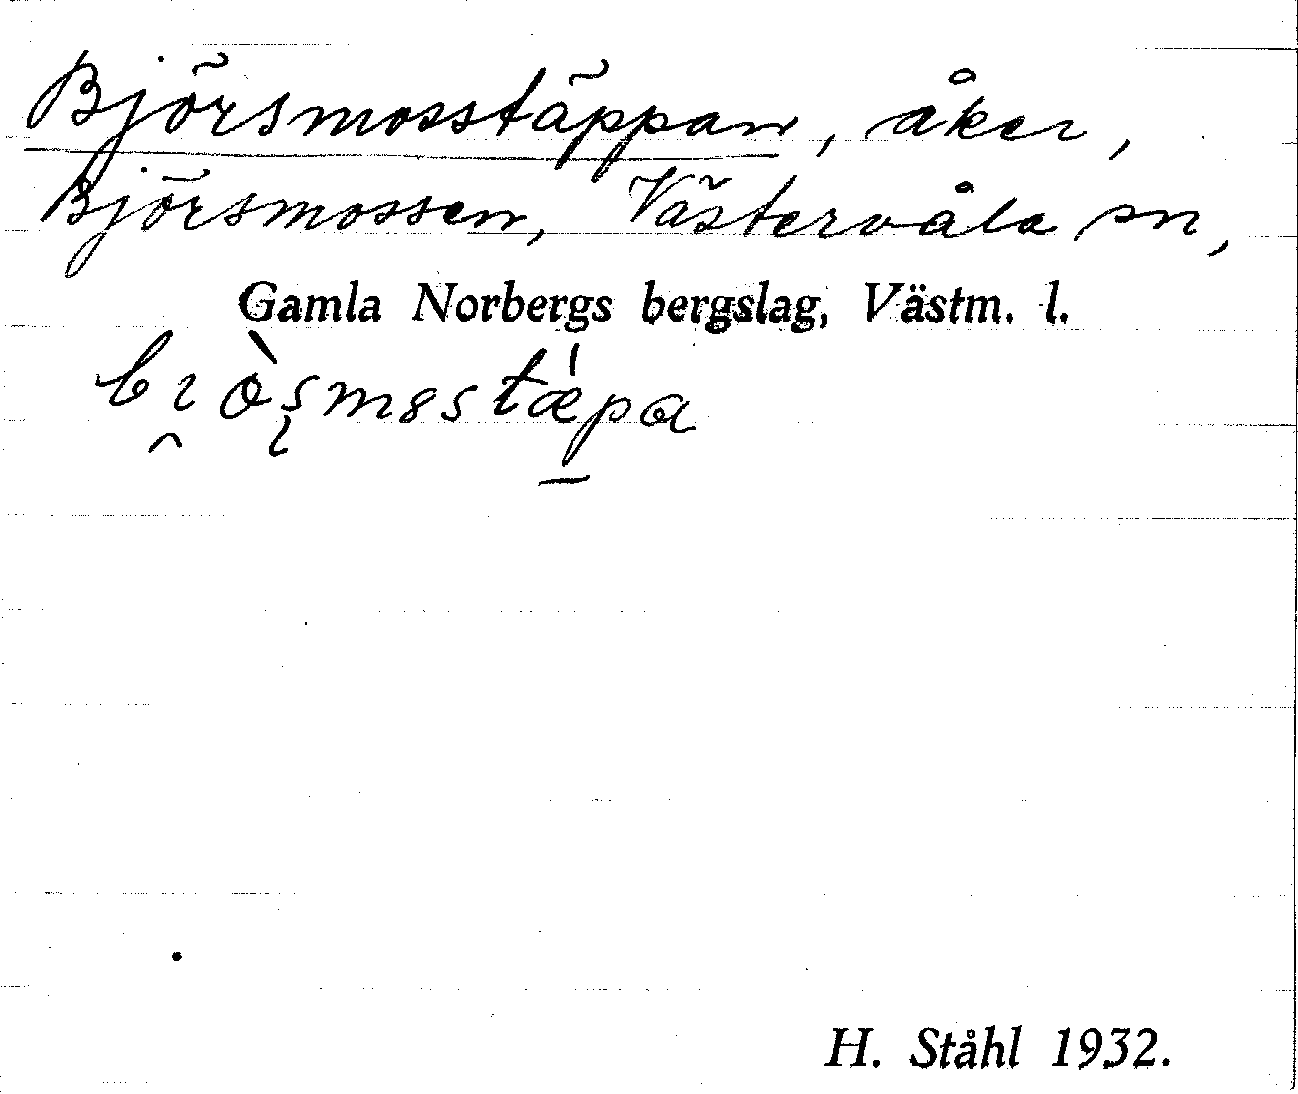 Björsmosstäppan, åker,
Björsmossen, Västervåla sn,
Gamla Norbergs bergslag, Västm. l.
H. Ståhl 1932.